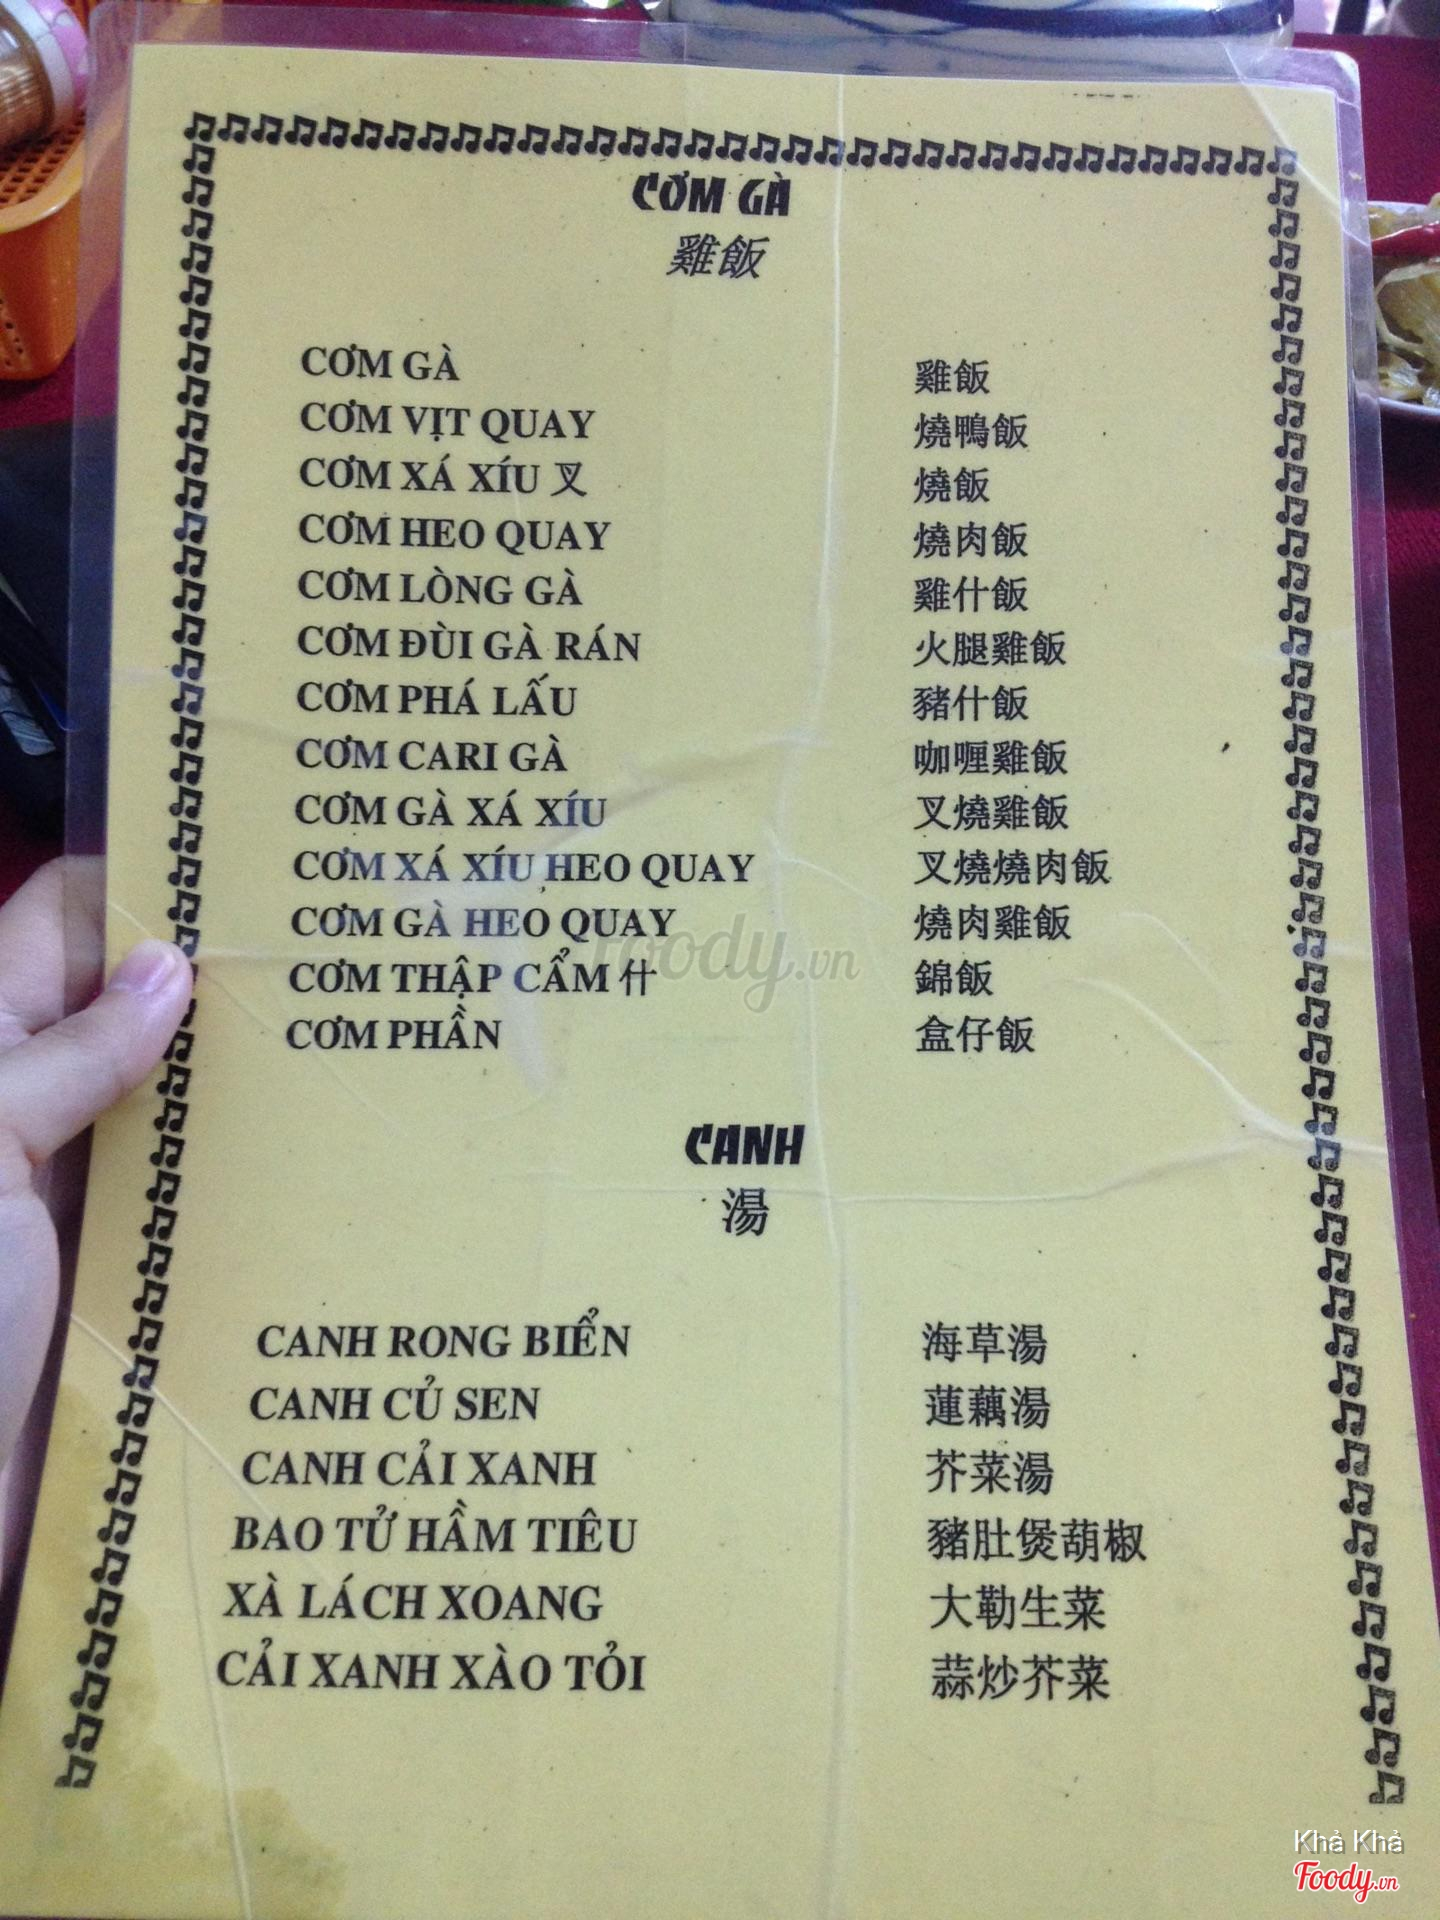 CƠM GÀ
雞飯
CƠM GÀ 雞飯
CƠM VỊT QUAY 燒鴨飯
CƠM XÁ XÍU 叉 燒飯
CƠM HEO QUAY 燒肉飯
CƠM LÒNG GÀ 雞什飯
CƠM ĐÙI GÀ RÁN 火腿雞飯
CƠM PHÁ LẤU 豬什飯
CƠM CARI GÀ 咖喱雞飯
CƠM GÀ XÁ XÍU 叉燒雞飯
CƠM XÁ XÍU HEO QUAY 叉燒燒肉飯
CƠM GÀ HEO QUAY 燒肉雞飯
foody.vn
CƠM THẬP CẨM 什 錦飯
CƠM PHẦN 盒仔飯
CANH
湯
CANH RONG BIỂN 海草湯
CANH CỦ SEN 蓮藕湯
CANH CẢI XANH 芥菜湯
BAO TỬ HẦM TIÊU 豬肚煲葫椒
XÀ LÁCH XOANG 大勒生菜
CẢI XANH XÀO TỎI 蒜炒芥菜
Khả Khả
Foody.vn